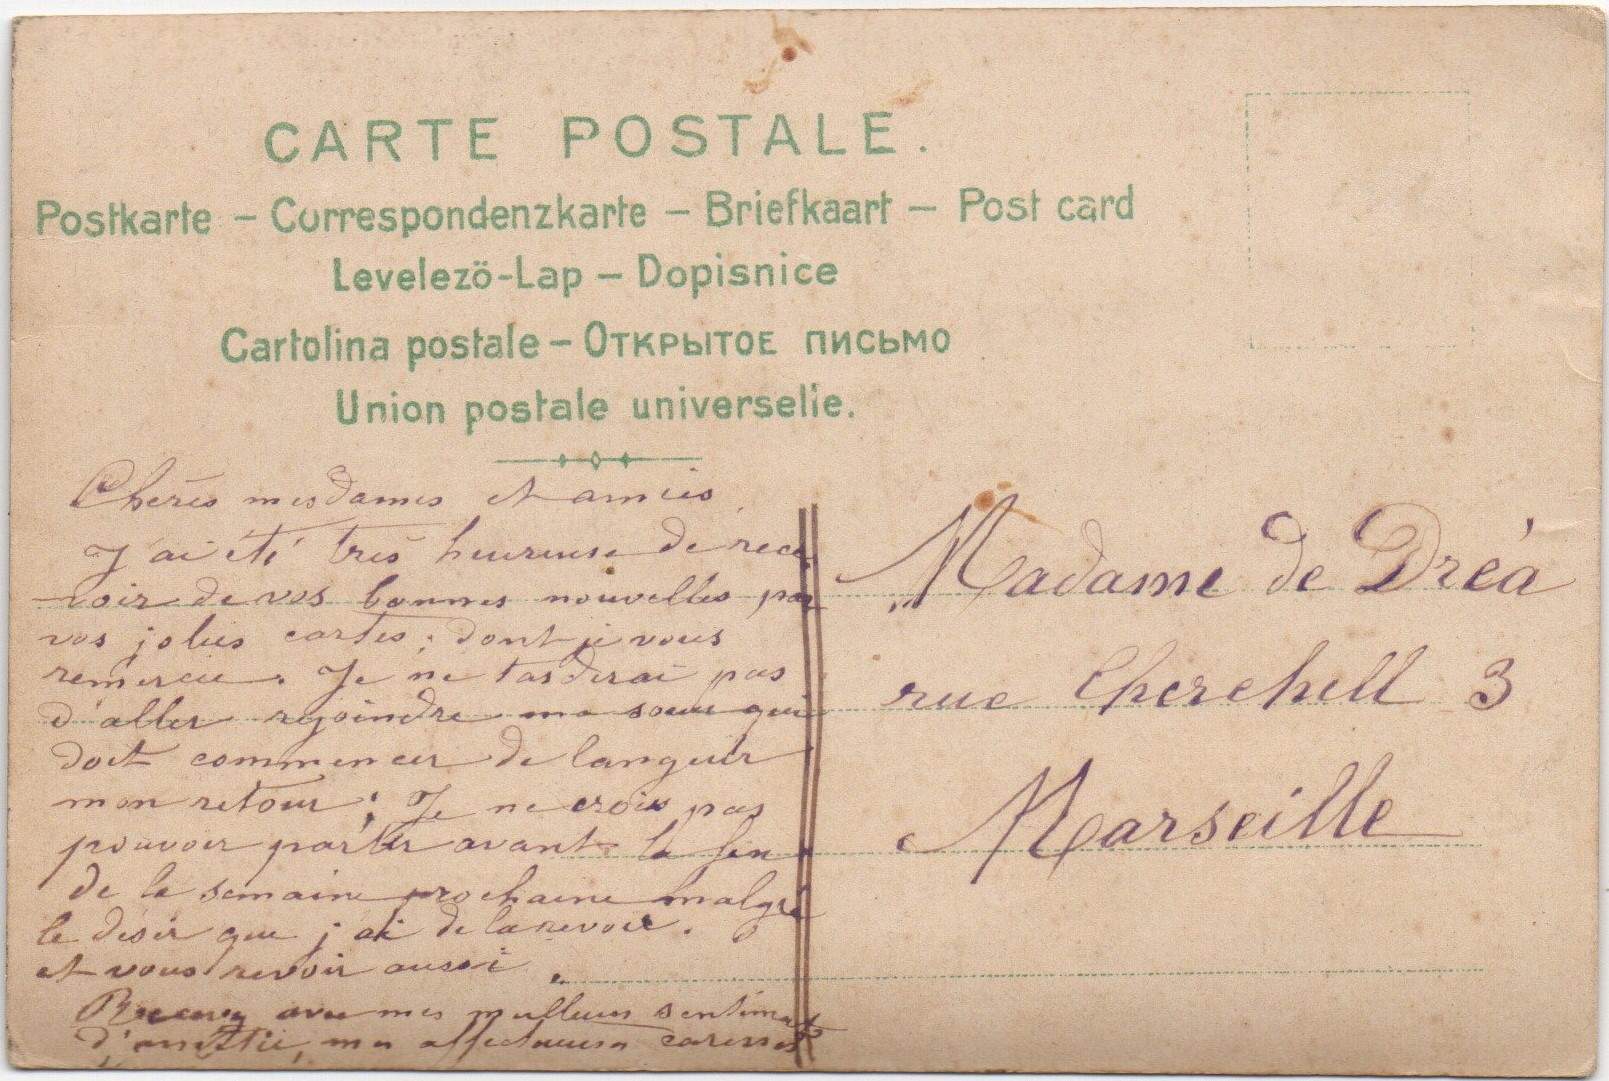 CARTE POSTALE.
Postkarte – Correspondenzkarte – Briefkaart – Post card
Levelezö-Lap – Dopisnice
Cartolina postale – Открытое письмо
Union postale universelle.
Chères mesdames et amies
J'ai été très heureuse de rece
voir de vos bonnes nouvelles par
vos jolies cartes, dont je vous
remercie. Je ne tarderai pas
d'aller rejoindre ma soeur qui
doit commencer de languir
mon retour; Je ne crois pas
pouvoir partir avant la fin
de la semaine prochaine malgré
le désir que j'ai de la revoir.
et vous revoir aussi.
Recevez avec mes meilleurs sentiments
d'amitié, mes affectueuses caresses
Madame de Dréa
rue Cherchell 3
Marseille